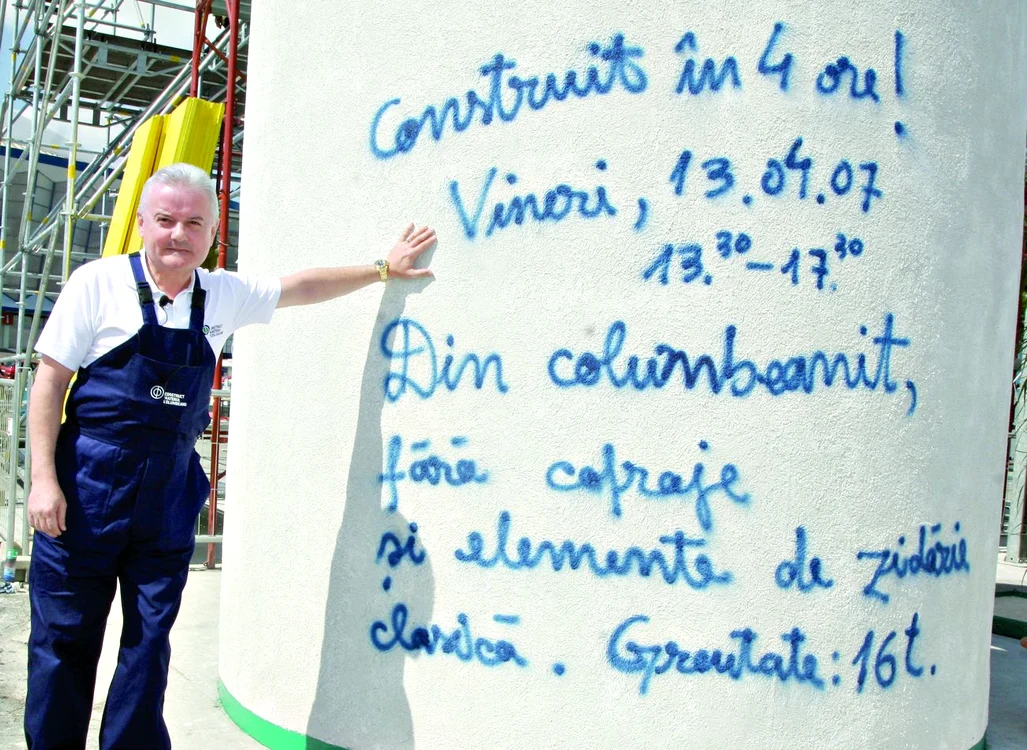 Construit în 4 ore!
Vineri, 13.04.07
13.30-17.30
Din columbeanit,
fără cofraje
și elemente de zidărie
clasică. Greutate: 16t.
CONSTRUCT
MATERIAL
COLUMBEANU